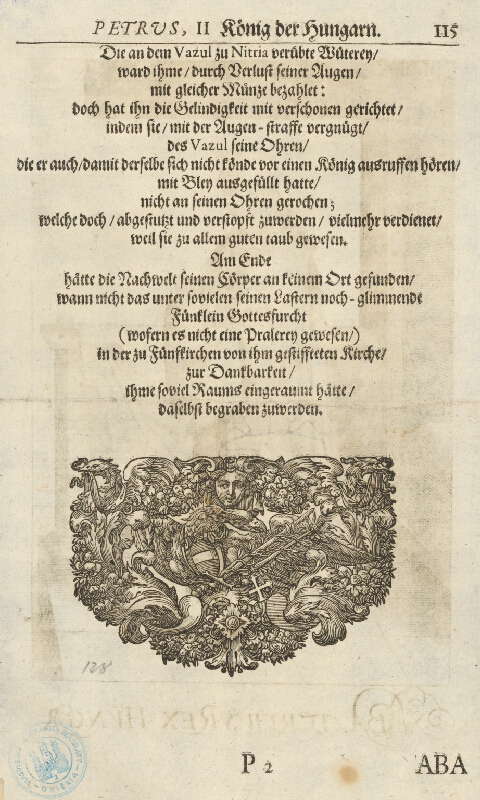 PETRUS, II König der Hungarn. 115
Die an dem Vazul zu Nitria verübte Wüterey/
ward ihme/ durch Verlust seiner Augen/
mit gleicher Münze bezahlet:
doch hat ihn die Gelindigkeit mit verschonen gerichtet/
indem sie/ mit der Augen-straffe vergnügt/
des Vazul seine Ohren/
die er auch/ damit derselbe sich nicht könde vor einen König ausruffen hören/
mit Bley ausgefüllt hatte/
nicht an seinen Ohren gerochen;
welche doch/ abgestutzt und verstopft zuwerden/ vielmehr verdienet/
weil sie zu allem guten taub gewesen.
Am Ende
hätte die Nachwelt seinen Cörper an keinem Ort gefunden/
wann nicht das unter sovielen seinen Lastern noch-glimmende
Fünklein Gottesfurcht
(wofern es nicht eine Pralerey gewesen/)
in der zu Fünfkirchen von ihm gestiffteten Kirche/
zur Dankbarkeit/
ihme soviel Raums eingeraumt hätte/
daselbst begraben zuwerden.
128
P 2 ABA